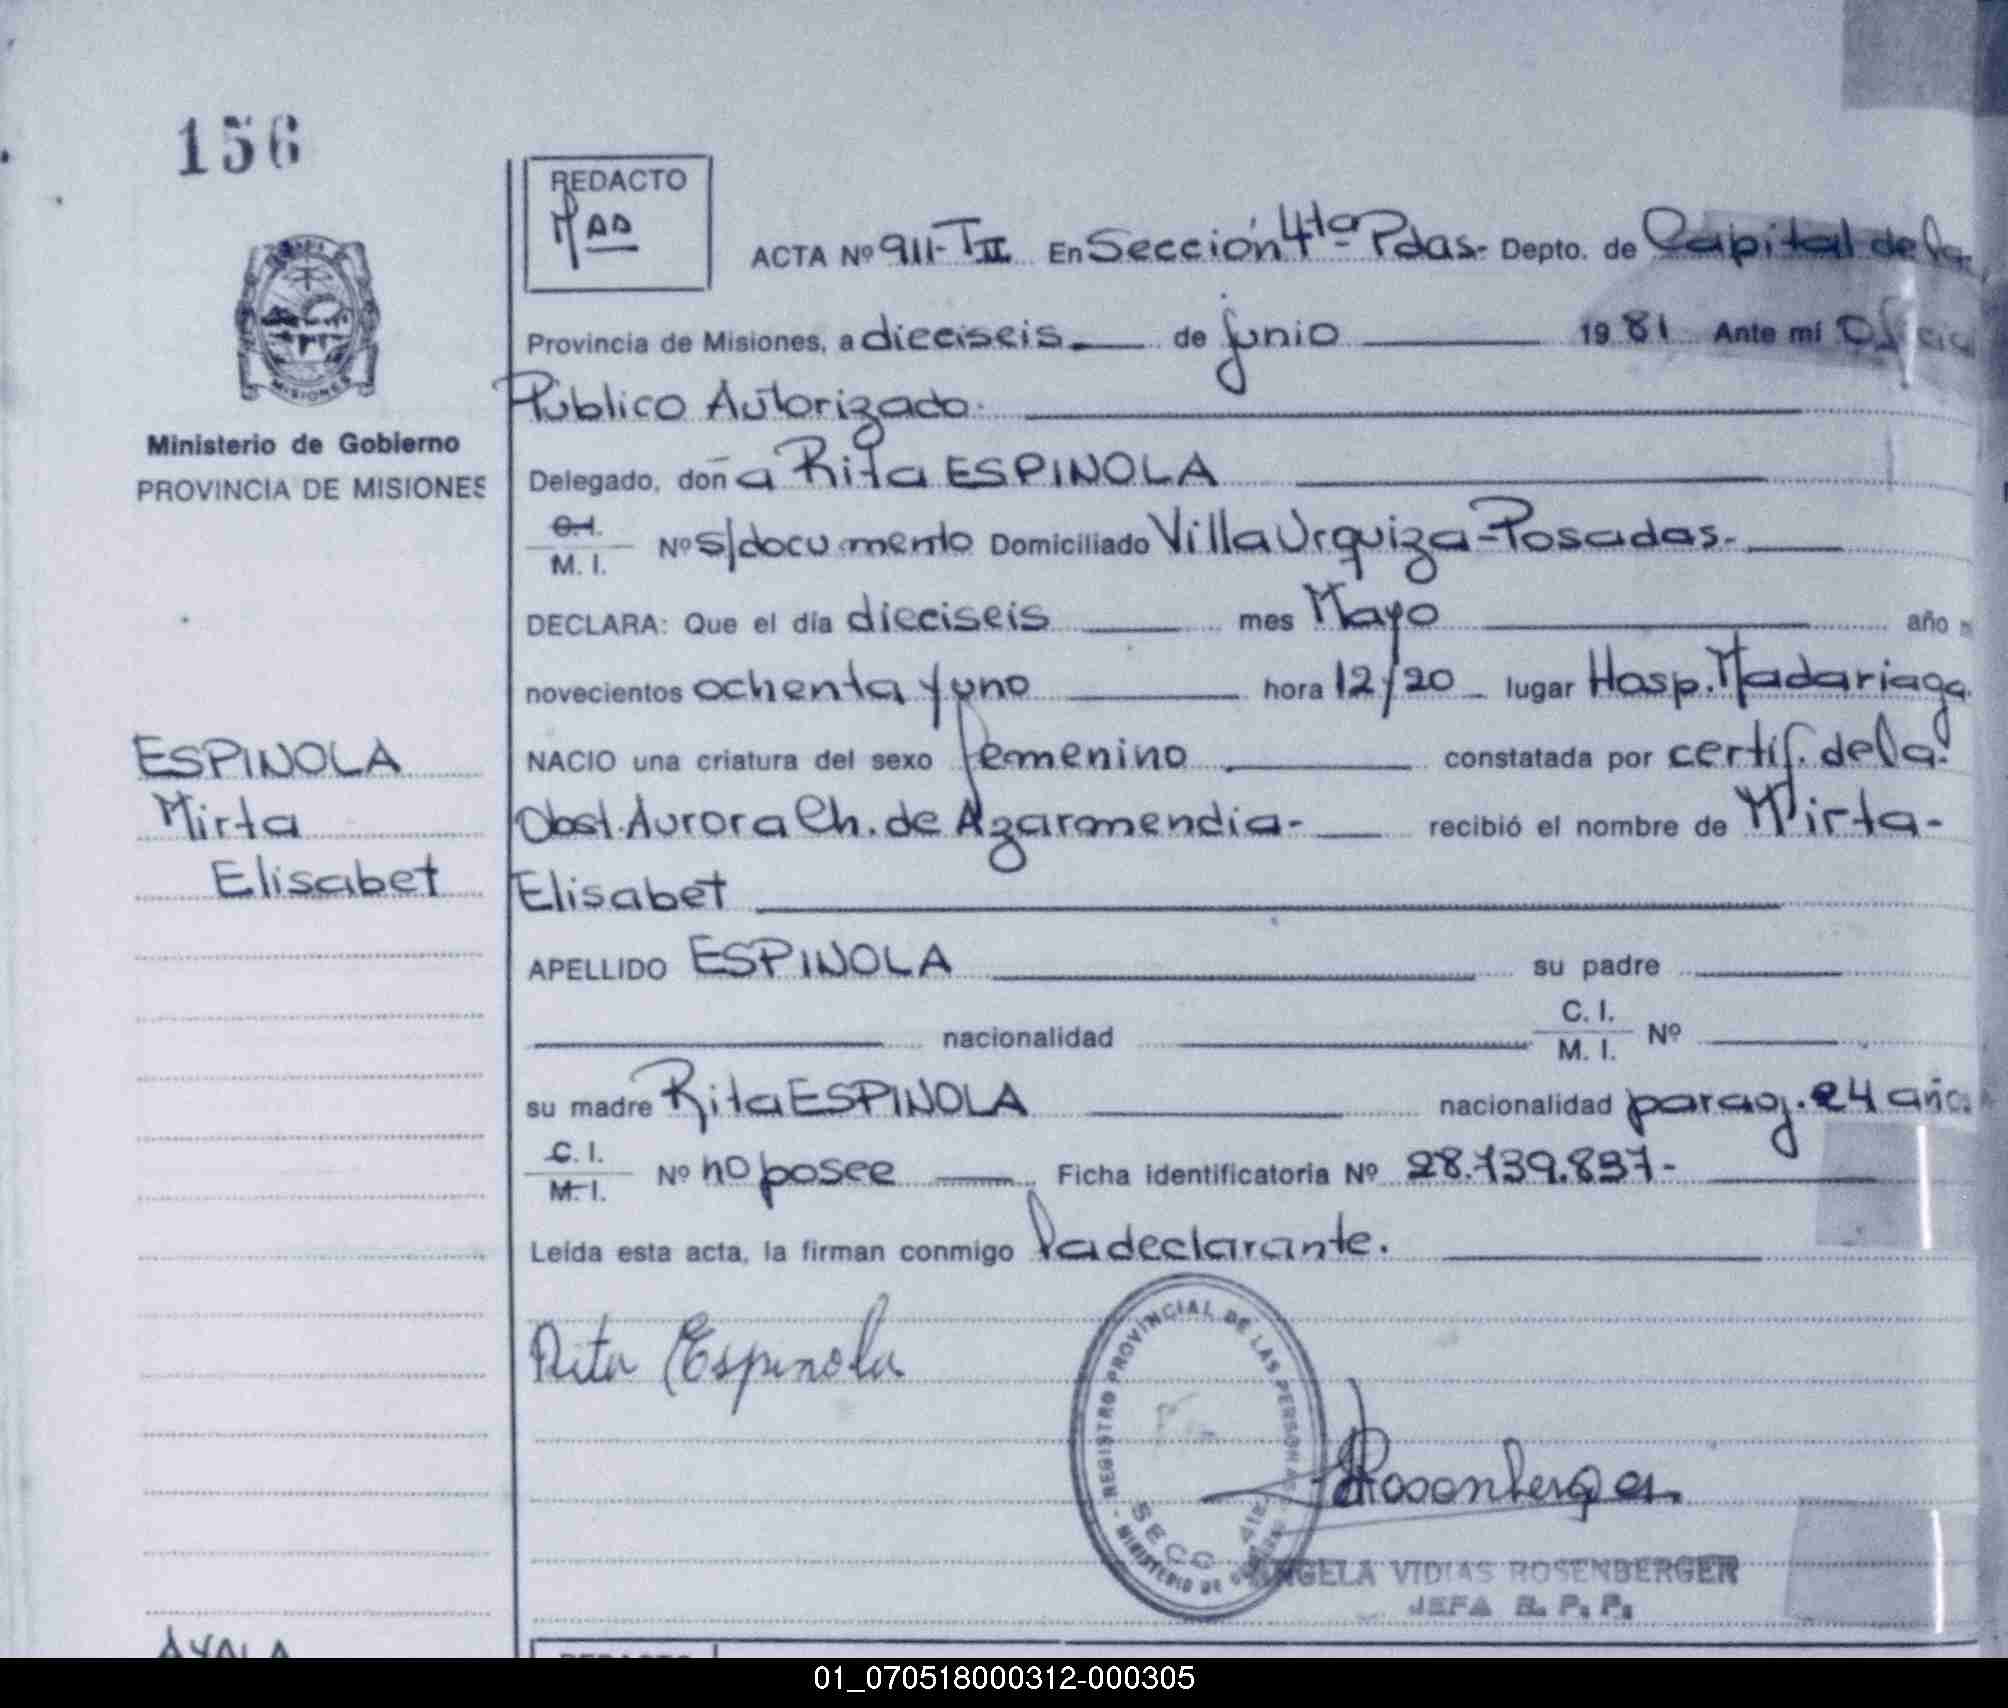 156
REDACTO
MAD
ACTA Nº 911-TII En Sección 4ta Pdas.- Depto. de Capital de la
Provincia de Misiones, a dieciseis de junio 1981 Ante mí Oficial
Público Autorizado.
Delegado, doña Rita ESPINOLA
C.I. M. I. Nº s/documento Domiciliado Villa Urquiza-Posadas.-
DECLARA: Que el día dieciseis mes Mayo año
novecientos ochenta y uno hora 12/20 lugar Hosp. Madariaga.
NACIO una criatura del sexo femenino constatada por certif. de la
Obst. Aurora Ch. de Azaromendia.- recibió el nombre de Mirta-
Elisabet
APELLIDO ESPINOLA su padre
nacionalidad C. I. M. I. Nº
su madre Rita ESPINOLA nacionalidad parag. 24 año
C. I. M. I. Nº no posee Ficha identificatoria Nº 28.739.837-
Leída esta acta, la firman conmigo la declarante.
MISIONES
Ministerio de Gobierno
PROVINCIA DE MISIONES
ESPINOLA
Mirta
Elisabet
Rita Espinola
REGISTRO PROVINCIAL DE LAS PERSONAS
MINISTERIO DE
SECC 4ta
Rosenberger
ANGELA VIDIAS ROSENBERGER
JEFA R. P. P.
AYALA
REDACTO
01_070518000312-000305